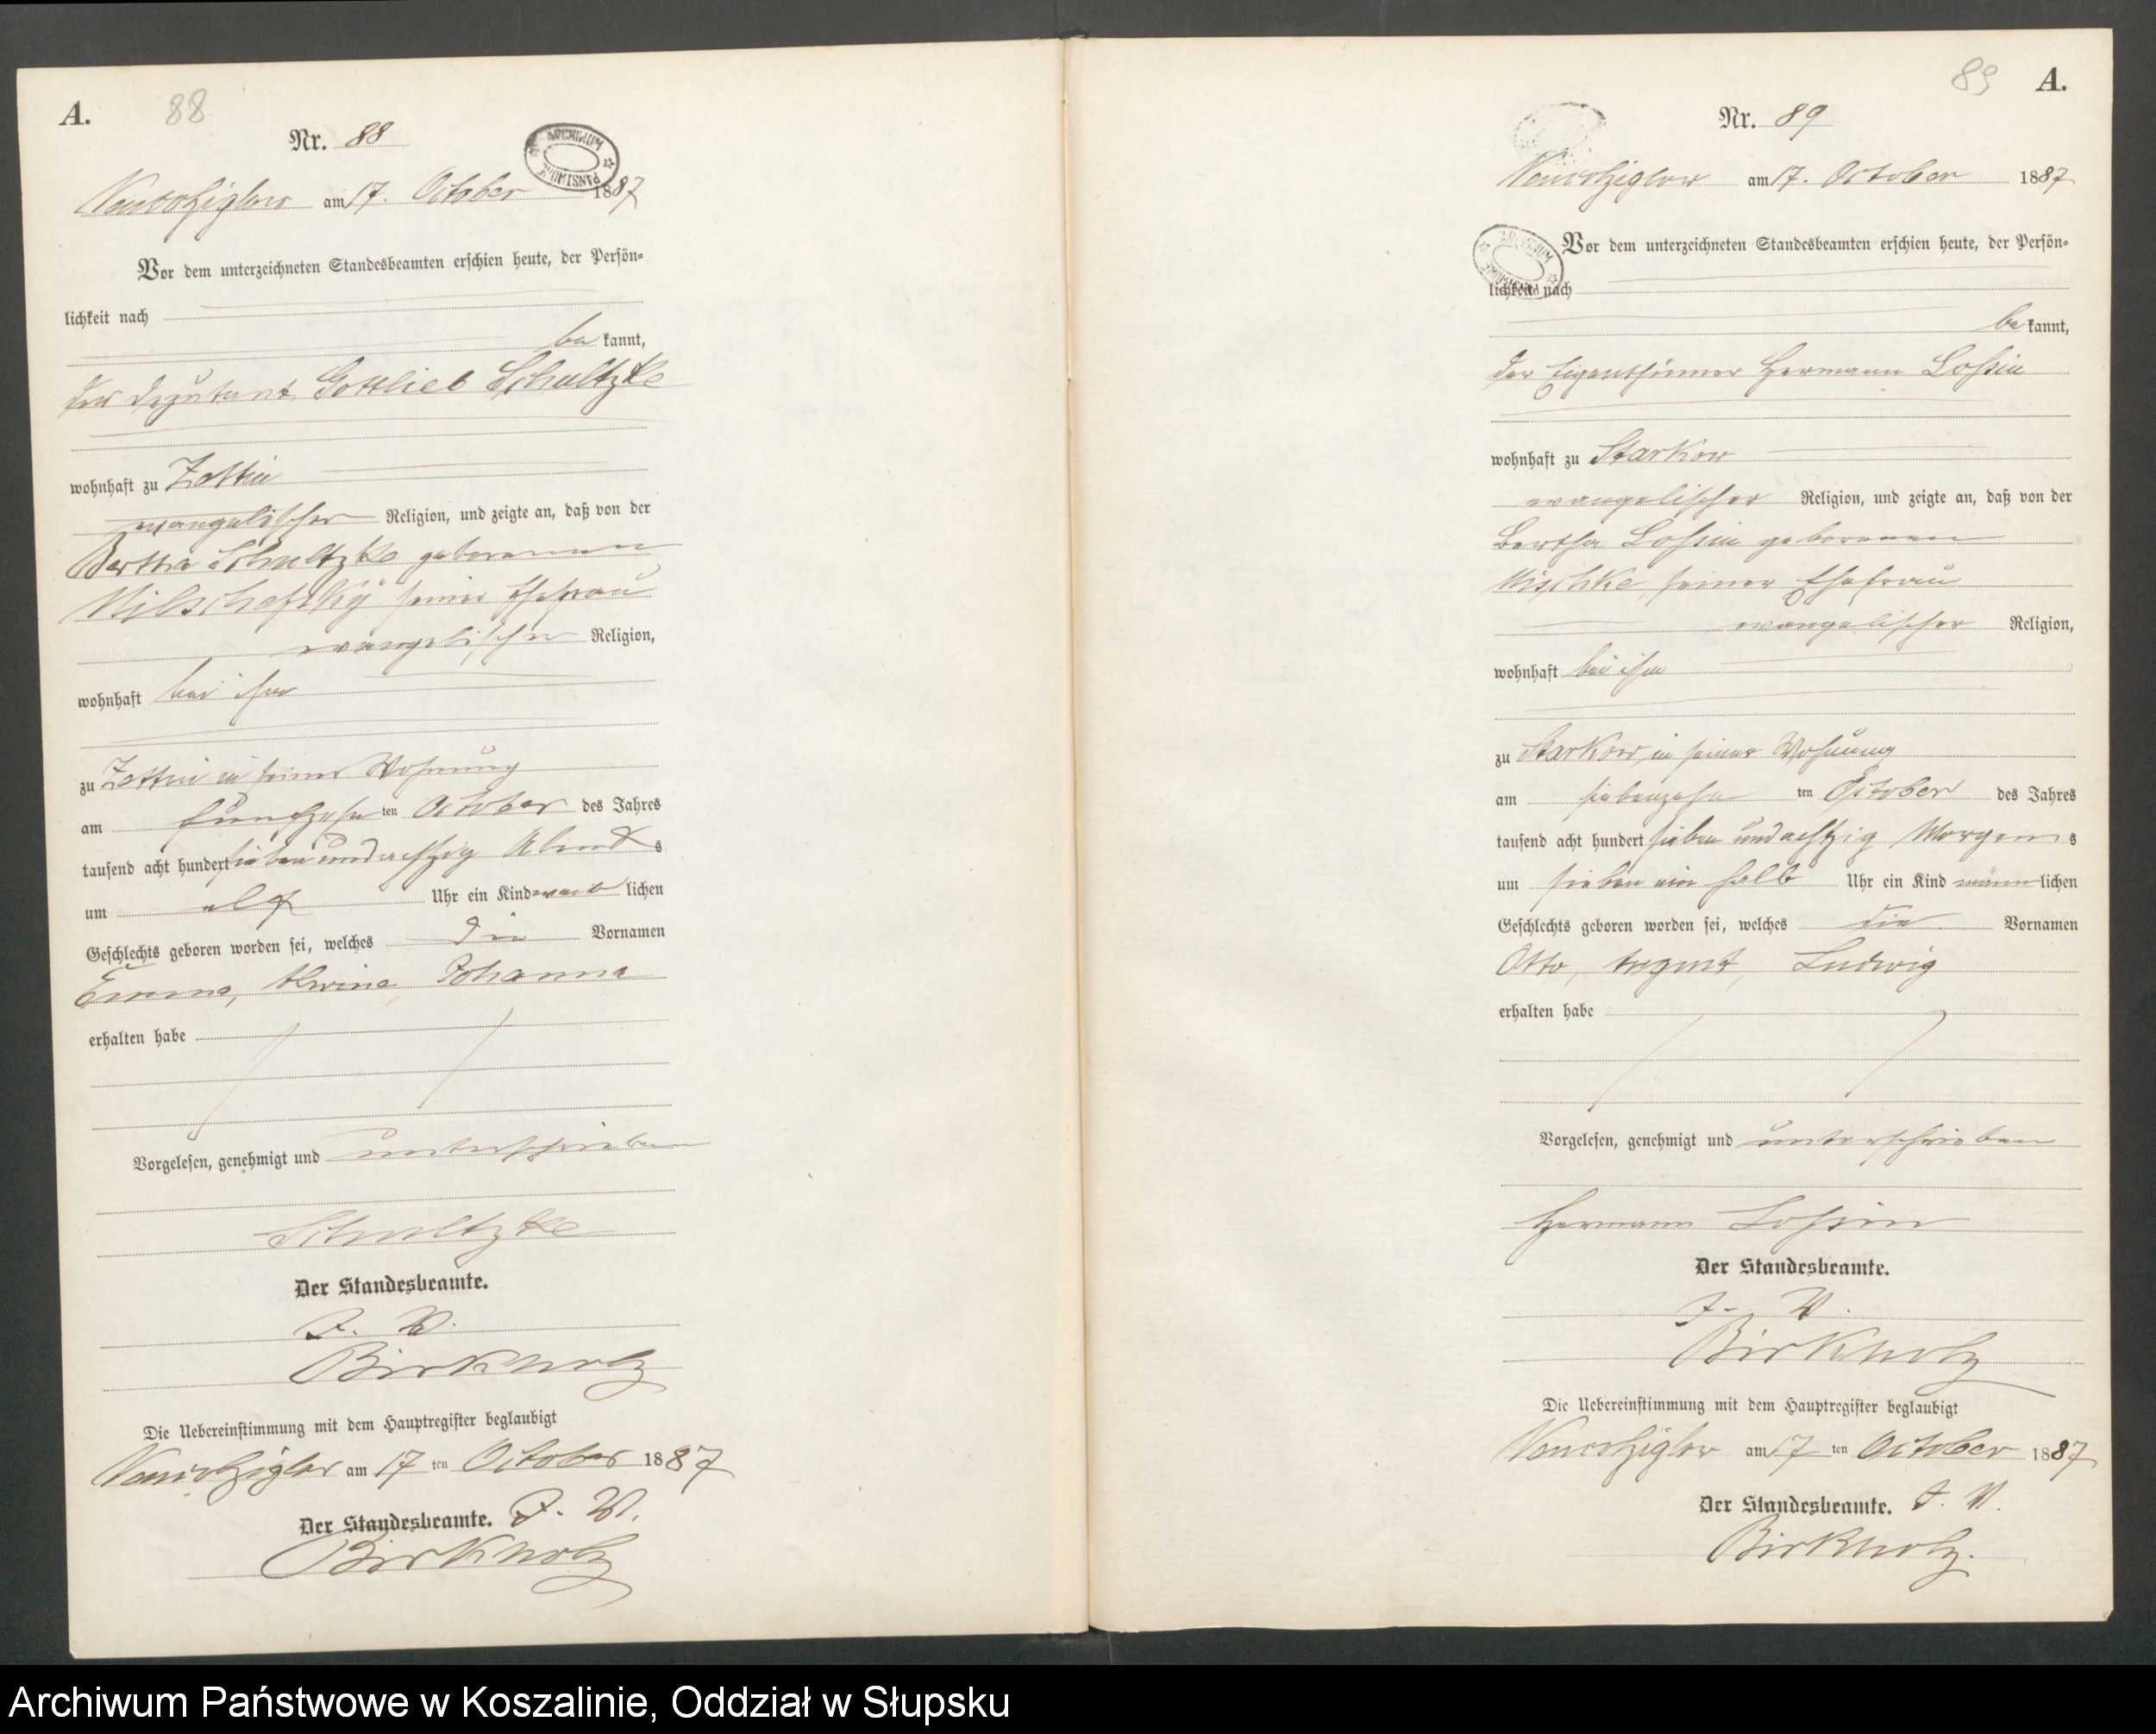 A. 88
Nr. 88
ARCHIWUM PAŃSTWOWE
am 17. October 1887
Vor dem unterzeichneten Standesbeamten erschien heute, der Persön=
lichkeit nach
be kannt,
der Deputant Gottlieb Schultzke
wohnhaft zu Zettin
evangelischer Religion, und zeigte an, daß von der
Bertha Schultzke geborenen
seiner Ehefrau
evangelischer Religion,
wohnhaft bei ihm
zu Zettin in seiner Wohnung
am fünfzehn ten October des Jahres
tausend acht hundert sieben und achtzig Abends
um elf Uhr ein Kind weib lichen
Geschlechts geboren worden sei, welches die Vornamen
Emma, Alwine, Johanna
erhalten habe
Vorgelesen, genehmigt und unterschrieben
Schultzke
Der Standesbeamte.
J. V.
Birkholz
Die Uebereinstimmung mit dem Hauptregister beglaubigt
am 17 ten October 1887
Der Standesbeamte. J. V.
Birkholz
89 A.
Nr. 89
am 17. October 1887
Vor dem unterzeichneten Standesbeamten erschien heute, der Persön=
lichkeit nach
be kannt,
der Eigenthümer Hermann Loßin
wohnhaft zu Starkow
evangelischer Religion, und zeigte an, daß von der
Bertha Loßin geborenen
Mischke, seiner Ehefrau
evangelischer Religion,
wohnhaft bei ihm
zu Starkow in seiner Wohnung
am siebenzehn ten October des Jahres
tausend acht hundert sieben und achtzig Morgens
um sieben ein halb Uhr ein Kind männ lichen
Geschlechts geboren worden sei, welches die Vornamen
Otto, August, Ludwig
erhalten habe
Vorgelesen, genehmigt und unterschrieben
Hermann Loßin
Der Standesbeamte.
J. V.
Birkholz
Die Uebereinstimmung mit dem Hauptregister beglaubigt
am 17 ten October 1887
Der Standesbeamte. J. V.
Birkholz.
Archiwum Państwowe w Koszalinie, Oddział w Słupsku